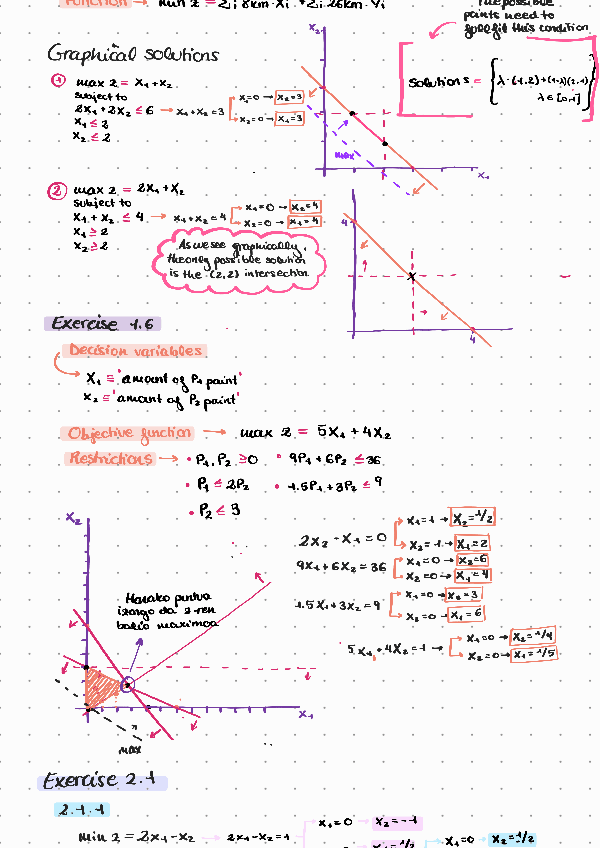 Function → min z = 2,18km·x₁ + 2,26km·y₁
The possible
points need to
fullfil this condition
Graphical solutions
① max z = x₁ + x₂
subject to
2x₁ + 2x₂ ≤ 6 → x₁ + x₂ = 3
x₁=0 → x₂=3
x₂=0 → x₁=3
x₁ ≤ 2
x₂ ≤ 2
x₂
max
x₁
Solutions = { λ·(1,2)+(1-λ)(2,1)
λ ∈ [0,1] }
② max z = 2x₁ + x₂
subject to
x₁ + x₂ ≤ 4 → x₁ + x₂ = 4
x₁=0 → x₂=4
x₂=0 → x₁=4
x₁ ≥ 2
x₂ ≥ 2
As we see graphically,
the only possible solution
is the (2,2) intersection
4
4
Exercise 1.6
Decision variables
x₁ ≡ "amount of P₁ paint"
x₂ ≡ "amount of P₂ paint"
Objective function → max z = 5x₁ + 4x₂
Restrictions → • P₁, P₂ ≥ 0 • 9P₁ + 6P₂ ≤ 36
• P₁ ≤ 2P₂ • 1.5P₁ + 3P₂ ≤ 9
• P₂ ≤ 3
x₂
Hanako puntua
izango da z-ren
balio maximoa
x₁
max
2x₂ - x₁ = 0
x₁=1 → x₂=1/2
x₂=1 → x₁=2
9x₁ + 6x₂ = 36
x₁=0 → x₂=6
x₂=0 → x₁=4
1.5x₁ + 3x₂ = 9
x₁=0 → x₂=3
x₂=0 → x₁=6
5x₁ + 4x₂ = 1 →
x₁=0 → x₂=1/4
x₂=0 → x₁=1/5
Exercise 2.1
2.1.1
min z = 2x₁ - x₂ → 2x₁ - x₂ = 1
x₁=0 x₂=-1
x₁=1/2
x₁=0 → x₂=1/2